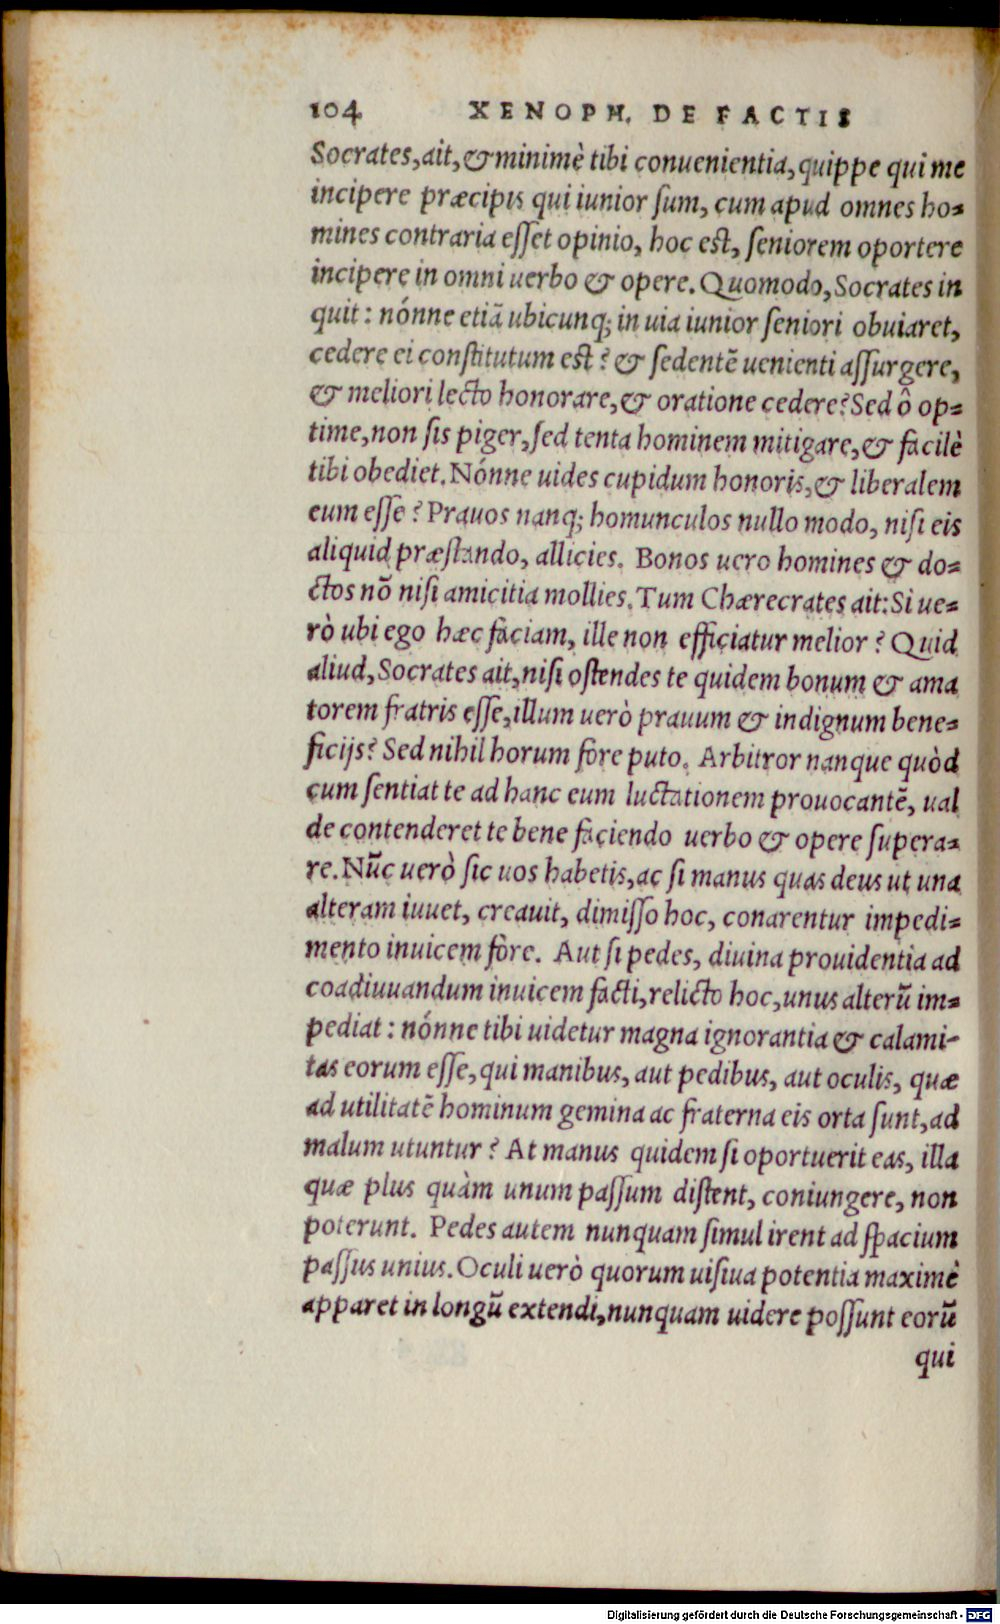 104 XENOPH. DE FACTIS
Socrates, ait, & minimè tibi conuenientia, quippe qui me
incipere præcipis qui iunior sum, cum apud omnes ho=
mines contraria esset opinio, hoc est, seniorem oportere
incipere in omni uerbo & opere. Quomodo, Socrates in
quit: nónne etiã ubicunq; in uia iunior seniori obuiaret,
cedere ei constitutum est? & sedentẽ uenienti assurgere,
& meliori lecto honorare, & oratione cedere? Sed ô op=
time, non sis piger, sed tenta hominem mitigare, & facilè
tibi obediet. Nónne uides cupidum honoris, & liberalem
eum esse? Prauos nanq; homunculos nullo modo, nisi eis
aliquid præstando, allicies. Bonos uero homines & do=
ctos nõ nisi amicitia mollies. Tum Chærecrates ait: Si ue=
rò ubi ego hæc faciam, ille non efficiatur melior? Quid
aliud, Socrates ait, nisi ostendes te quidem bonum & ama
torem fratris esse, illum uerò prauum & indignum bene=
ficijs? Sed nihil horum fore puto. Arbitror nanque quòd
cum sentiat te ad hanc eum luctationem prouocantẽ, ual
de contenderet te bene faciendo uerbo & opere supera=
re. Nũc uerò sic uos habetis, ac si manus quas deus ut una
alteram iuuet, creauit, dimisso hoc, conarentur impedi=
mento inuicem fore. Aut si pedes, diuina prouidentia ad
coadiuuandum inuicem facti, relicto hoc, unus alterũ im=
pediat: nónne tibi uidetur magna ignorantia & calami-
tas eorum esse, qui manibus, aut pedibus, aut oculis, quæ
ad utilitatẽ hominum gemina ac fraterna eis orta sunt, ad
malum utuntur? At manus quidem si oportuerit eas, illa
quæ plus quàm unum passum distent, coniungere, non
poterunt. Pedes autem nunquam simul irent ad spacium
passus unius. Oculi uerò quorum uisiua potentia maximè
apparet in longũ extendi, nunquam uidere possunt eorũ
qui
Digitalisierung gefördert durch die Deutsche Forschungsgemeinschaft - DFG